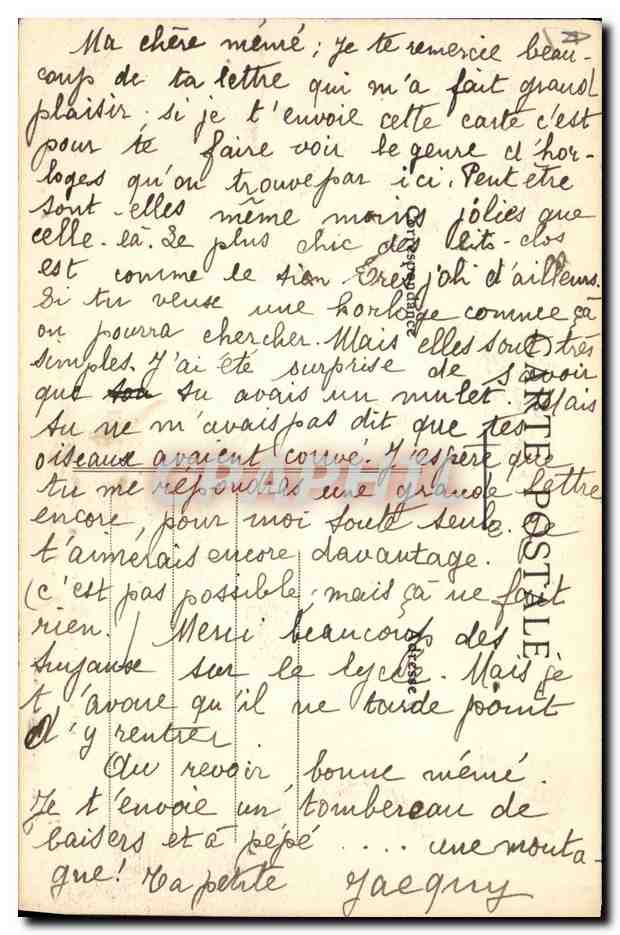 Ma chère mémé ; Je te remercie beau-
coup de ta lettre qui m'a fait grand
plaisir ; si je t'envoie cette carte c'est
pour te faire voir le genre d'hor-
loges qu'on trouve par ici. Peut être
sont-elles même moins jolies que
celle-là. Le plus chic des lits-clos
est comme le sien Très joli d'ailleurs.
Si tu veux une horloge comme çà
on pourra chercher. Mais elles sont très
simples. J'ai été surprise de savoir
que tu avais un mulet. Mais
tu ne m'avais pas dit que tes
oiseaux avaient couvé. J'espère que
tu me répondras une grande lettre
encore, pour moi toute seule. Je
t'aimerais encore davantage.
(c'est pas possible, mais çà ne fait
rien.) Merci beaucoup des
tuyaux sur le lycée. Mais je
t'avoue qu'il ne tarde point
d'y rentrer.
Au revoir, bonne mémé.
Je t'envoie un tombereau de
baisers et à pépé .... une monta-
gne! Ta petite Jacquy
CARTE POSTALE
Correspondance
Adresse
CPAPHIL